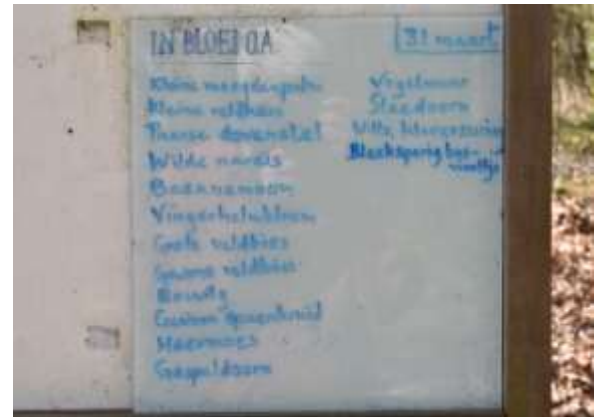 IN BLOEI O.A.
31 maart
Kleine maagdenpalm
Kleine veldkers
Paarse dovenetel
Wilde narcis
Bosanemoon
Vingerhelmbloem
Grote veldbies
Gewone veldbies
Gewoon speenkruid
Heermoes
Gaspeldoorn
Vogelmuur
Sleedoorn
Witte klaverzuring
Bleeksporig bos-
viooltje